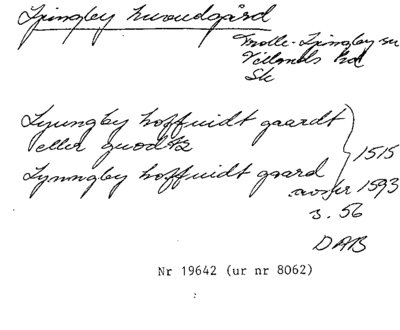 Ljungby huvudgård
Trolle-Ljungby sn
Villands hd
Sk
Lyungby hoffuidt gaardt
eller guodtz
Lynngby hoffuidt gaard
1515
avskr 1593
s. 56
DAB
Nr 19642 (ur nr 8062)